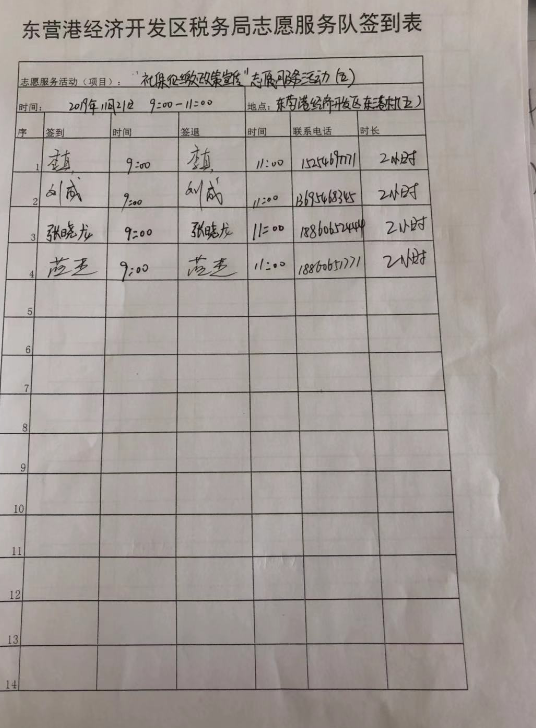 东营港经济开发区税务局志愿服务队签到表
志愿服务活动（项目）：“社保征缴政策宣传”志愿服务活动（五）
时间： 2019年11月21日 9:00-11:00 地点：东营港经济开发区东港村（五）
序 签到 时间 签退 时间 联系电话 时长
1 9:00 11:00 2小时
2 刘成 9:00 刘成 11:00 13695468345 2小时
3 张晓龙 9:00 张晓龙 11:00 18860652444 2小时
4 9:00 11:00 18860651771 2小时
5
6
7
8
9
10
11
12
13
14